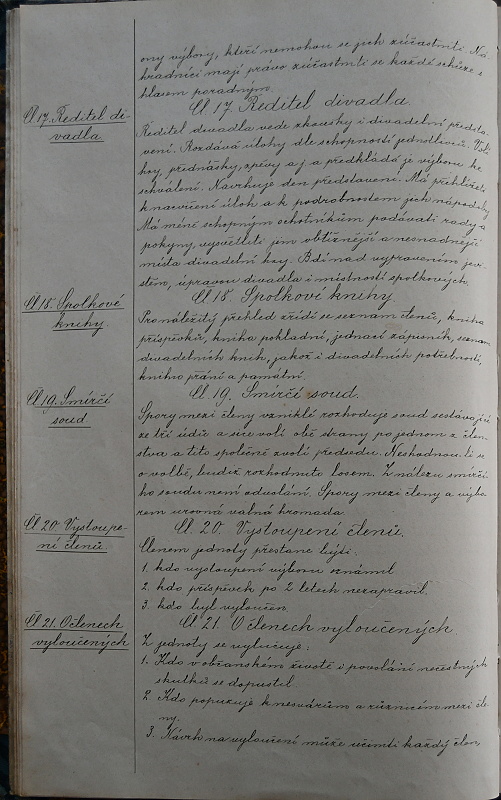 ony výbory, kteří nemohou se jich zúčastniti. Ná-
hradníci mají právo zúčastniti se každé schůze s
hlasem poradným.
Čl. 17. Ředitel di-
vadla.
Čl. 17. Ředitel divadla.
Ředitel divadla vede zkoušky i divadelní předsta-
vení. Rozdává úlohy dle schopností jednotlivců. Volí
hry, přednášky, zpěvy a j. a předkládá je výboru ke
schválení. Navrhuje den představení. Má přihlížeti
k nacvičení úloh a k podrobnostem jich nápodoby.
Má méně schopným ochotníkům podávati rady a
pokyny, vysvětliti jim obtížnější a nesnadnější
místa divadelní hry. Bdí nad vypravením jevi-
štěm, úpravou divadla i místností spolkových.
Čl. 18. Spolkové
knihy.
Čl. 18. Spolkové knihy.
Pro náležitý přehled zřídí se seznam členů, kniha
příspěvků, kniha pokladní, jednací zápisník, seznam
divadelních knih, jakož i divadelních potřebností,
kniha přání a památní.
Čl. 19. Smírčí
soud.
Čl. 19. Smírčí soud.
Spory mezi členy vzniklé rozhoduje soud sestávající
ze tří údů a sice volí obě strany po jednom z člen-
stva a tito společně zvolí předsedu. Neshodnou-li se
o volbě, budiž rozhodnuto losem. Z nálezu smírčí-
ho soudu není odvolání. Spory mezi členy a výbo-
rem urovná valná hromada.
Čl. 20. Vystoupe-
ní členů.
Čl. 20. Vystoupení členů.
Členem jednoty přestane býti:
1. kdo vystoupení výboru oznámil
2. kdo příspěvek po 2 letech nezapravil.
3. kdo byl vyloučen.
Čl. 21. O členech
vyloučených
Čl. 21. O členech vyloučených.
Z jednoty se vylučuje:
1. Kdo v občanském životě i povolání nečestných
skutků se dopustil.
2. Kdo popuzuje k nesvárům a různicím mezi čle-
ny.
3. Návrh na vyloučení může učiniti každý člen,